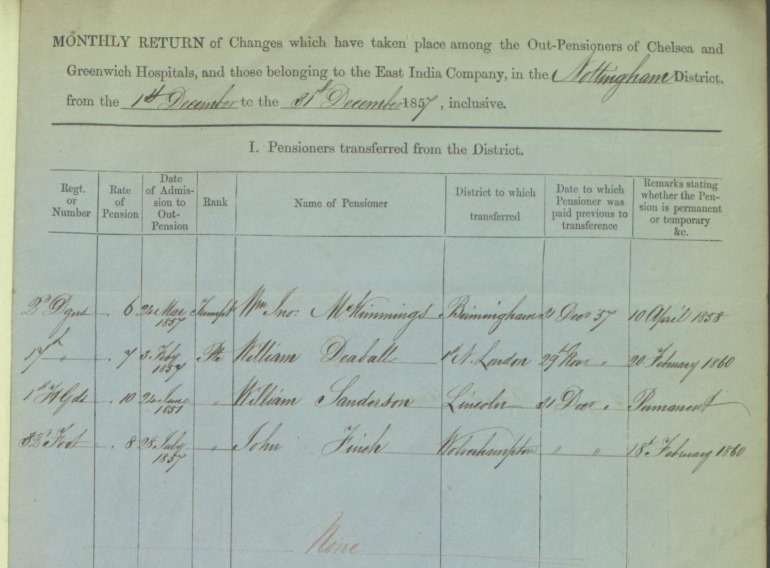 MONTHLY RETURN of Changes which have taken place among the Out-Pensioners of Chelsea and
Greenwich Hospitals, and those belonging to the East India Company, in the Nottingham District,
from the 1st December to the 31st December 1857, inclusive.
I. Pensioners transferred from the District.
Regt. or Number Rate of Pension Date of Admis-sion to Out-Pension Rank Name of Pensioner District to which transferred Date to which Pensioner was paid previous to transference Remarks stating whether the Pen-sion is permanent or temporary &c.
2d Dgns . 6 24 Mar 1857 Trumpr Wm Jno: McKimmings Birmingham 21 Decr 57 10 April 1858
17th " . 7 3 Feby 1857 Pte William Deaball 1st N. London 29 Novr " 20 February 1860
1st Ft Gds . 10 24 1851 " William Sanderson Lincoln 21 Decr " Permanent
82d Foot . 8 28 July 1857 " John Finch Wolverhampton " " 18th February 1860
None